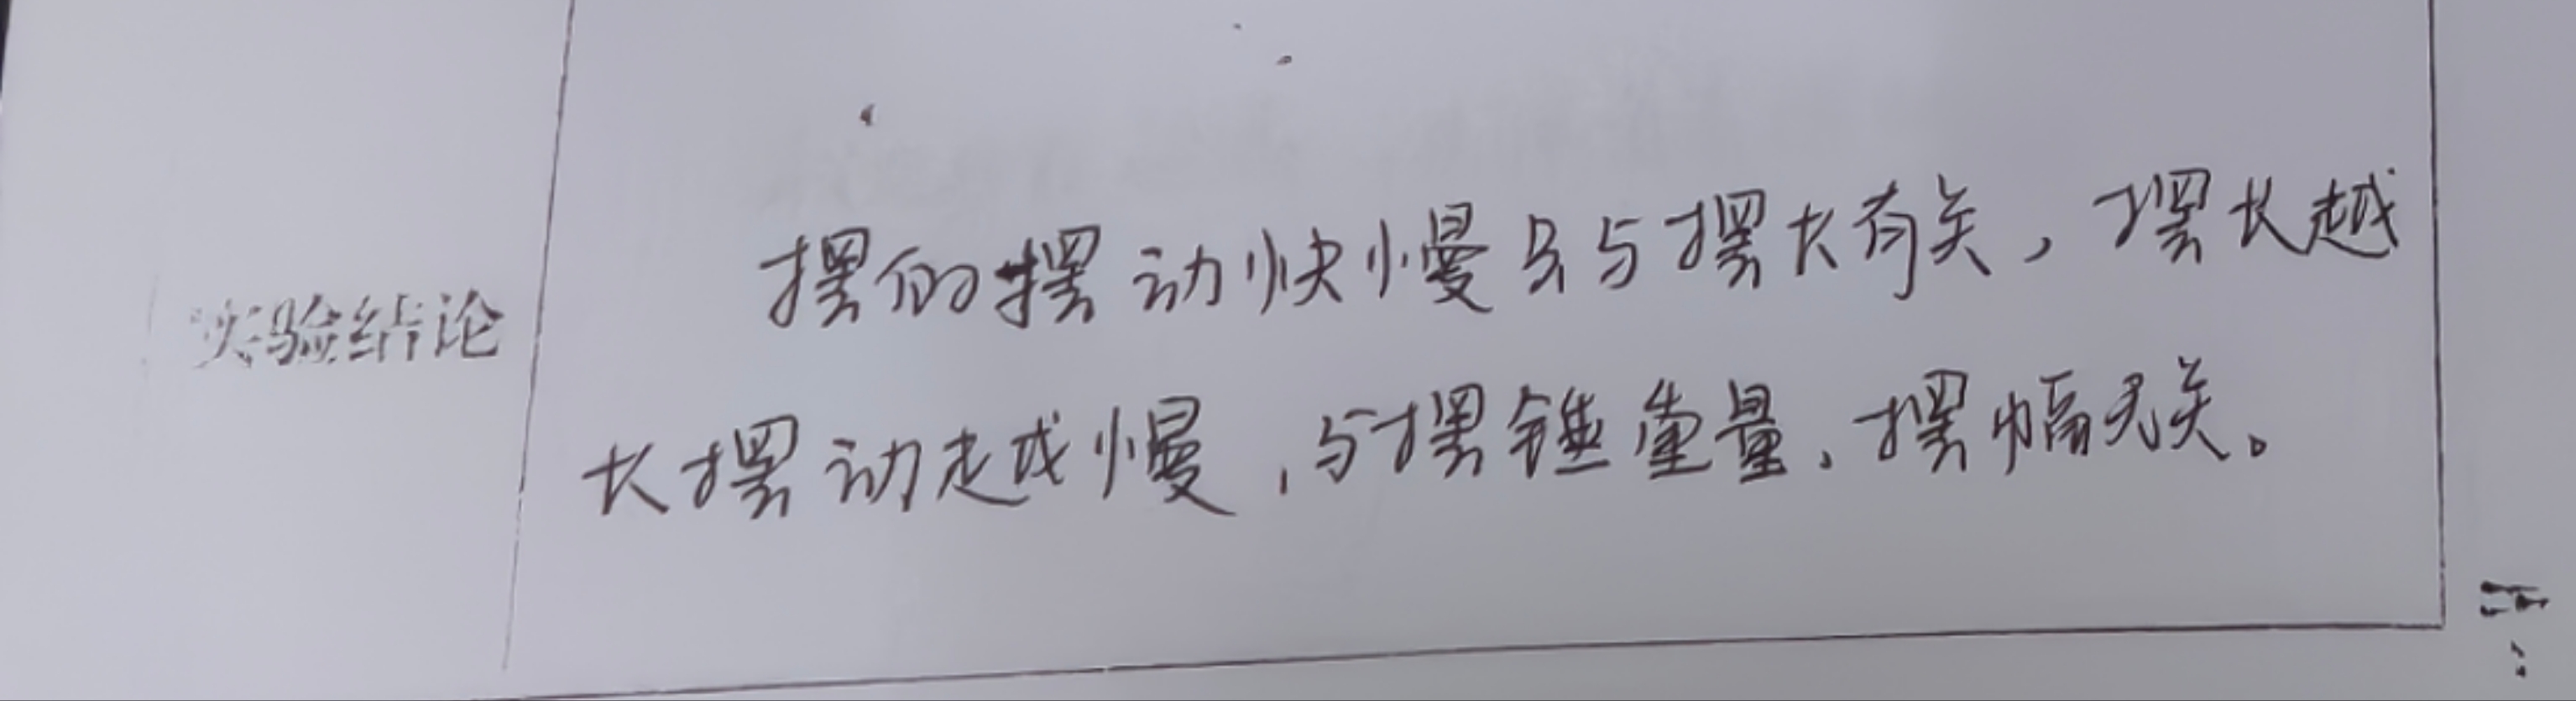 摆的摆动快慢只与摆长有关，摆长越
实验结论
长摆动越慢，与摆锤重量、摆幅无关。